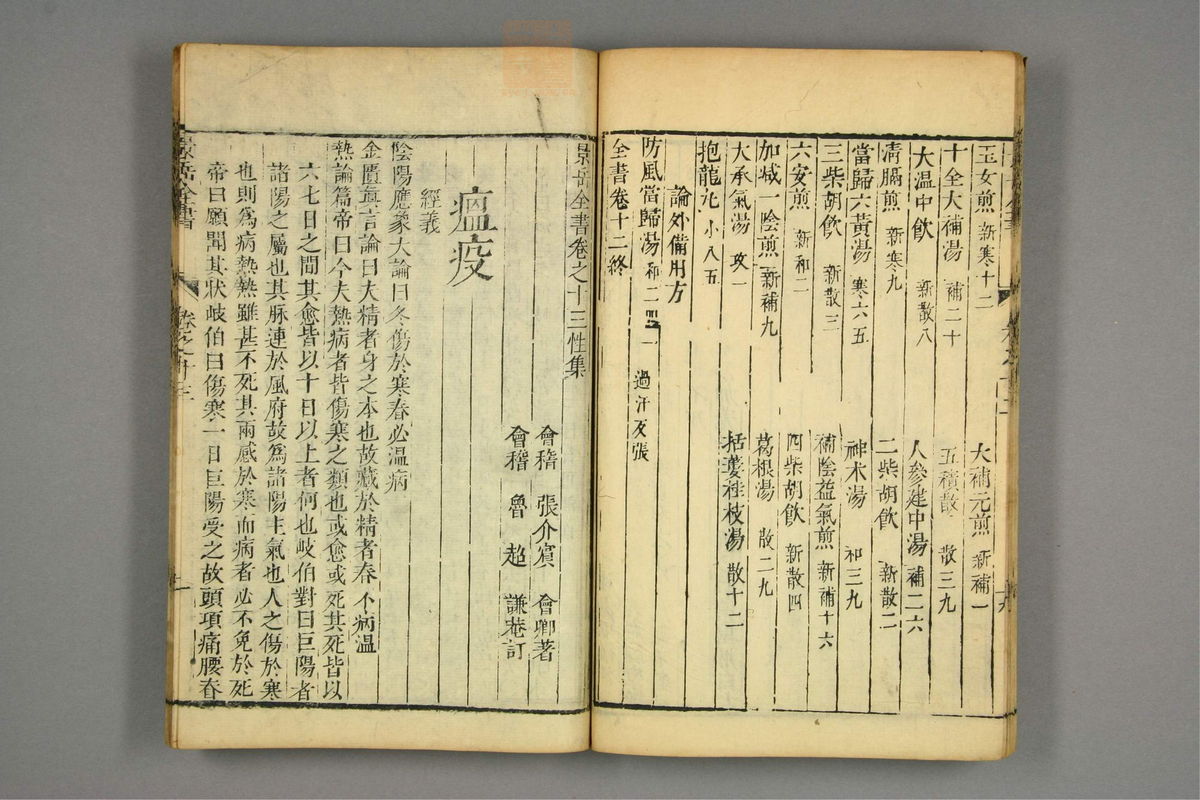 玉女煎 新寒十二 大補元煎 新補一
十全大補湯 補二十 五積散 散三九
大温中飲 新散八 人參建中湯 補二六
清膈煎 新寒九 二柴胡飲 新散二
當歸六黃湯 寒六五 神术湯 和三九
三柴胡飲 新散三 補陰益氣煎 新補十六
六安煎 新和二 四柴胡飲 新散四
加減一陰煎 新補九 葛根湯 散二九
大承氣湯 攻一 括蔞桂枝湯 散十二
抱龍丸 小八五
論外備用方
防風當歸湯 和二 過汗反張
全書卷十二終
景岳全書卷之十三性集
會稽 張介賔 會卿著
會稽 魯超 謙菴訂
瘟疫
經義
陰陽應象大論曰冬傷於寒春必温病
金匱眞言論曰夫精者身之本也故藏於精者春不病温
熱論篇帝曰今夫熱病者皆傷寒之類也或愈或死其死皆以
六七日之間其愈皆以十日以上者何也岐伯對曰巨陽者
諸陽之屬也其脉連於風府故爲諸陽主氣也人之傷於寒
也則爲病熱熱雖甚不死其兩感於寒而病者必不免於死
帝曰願聞其狀岐伯曰傷寒一日巨陽受之故頭項痛腰脊
景岳全書 卷之十三 一